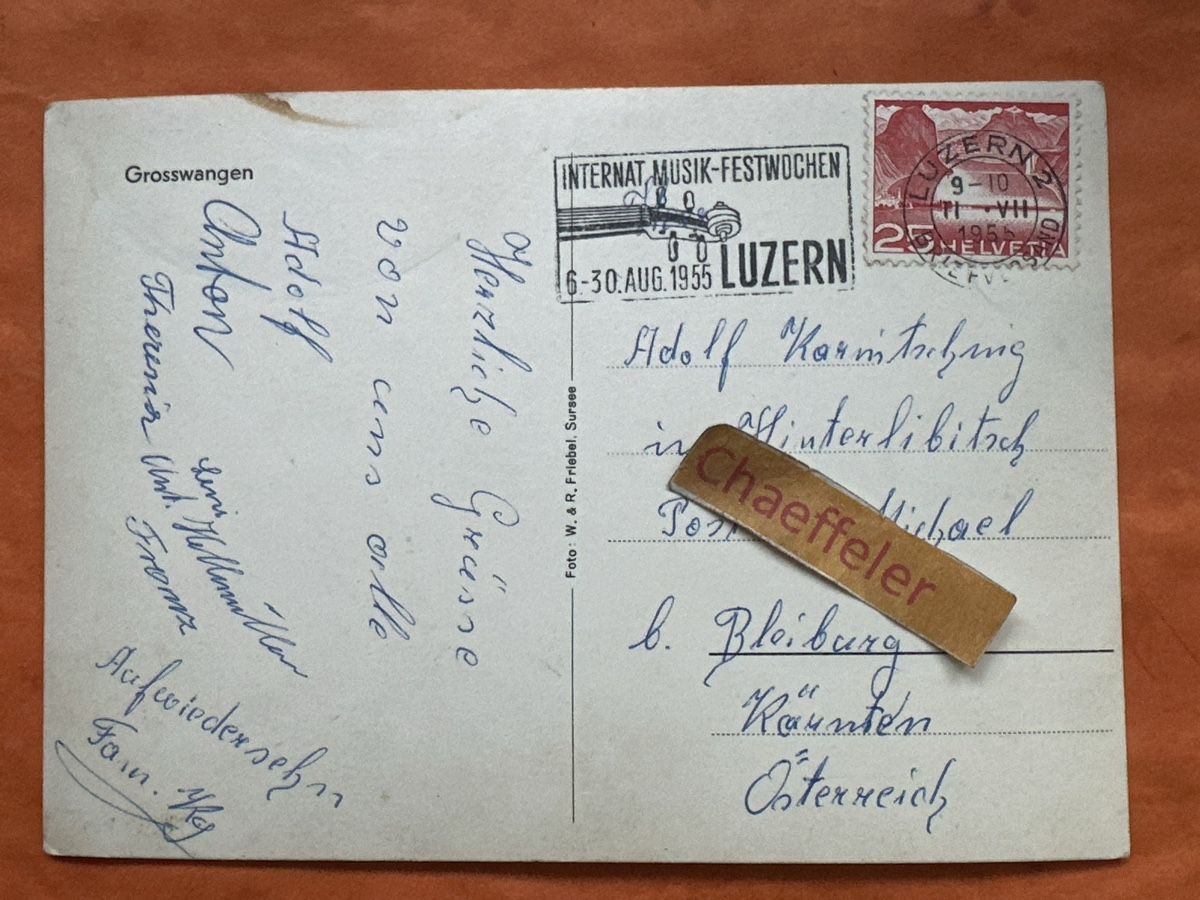 Grosswangen
Herzliche Grüsse
von uns alle
Adolf
Anton
Theresia
Ant. Franz
Aufwiedersehn
Fam.
Foto: W. & R. Friebel, Sursee
INTERNAT. MUSIK-FESTWOCHEN
6.-30. AUG. 1955 LUZERN
LUZERN 2
9-10
11. VII
1955
25 HELVETIA
Adolf Karnitschnig
in Hinterlibitsch
Michael
Chaeffeler
b. Bleiburg
Kärnten
Österreich